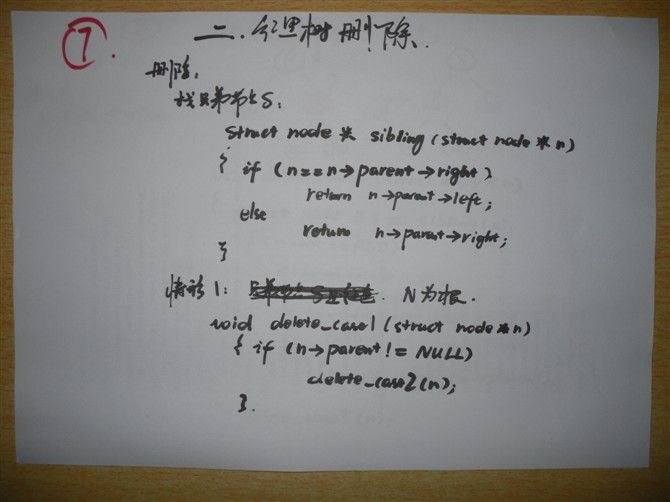 7.
二.红黑树删除.
删除:
找兄弟节点S:
struct node * sibling (struct node * n)
{ if (n==n→parent→right)
return n→parent→left;
else
return n→parent→right;
}
情形1: N为根.
void delete_case1 (struct node * n)
{ if (n→parent != NULL)
delete_case2 (n);
}.